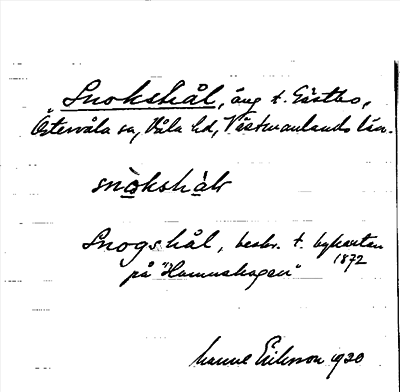 Snokshål, äng t. Gästbo,
Östervåla sn, Våla hd, Västmanlands län.
snòkshàl
Snogshål, beskr. t. bykartan
1872
på "Hamnshagen"
Manne Eriksson 1930